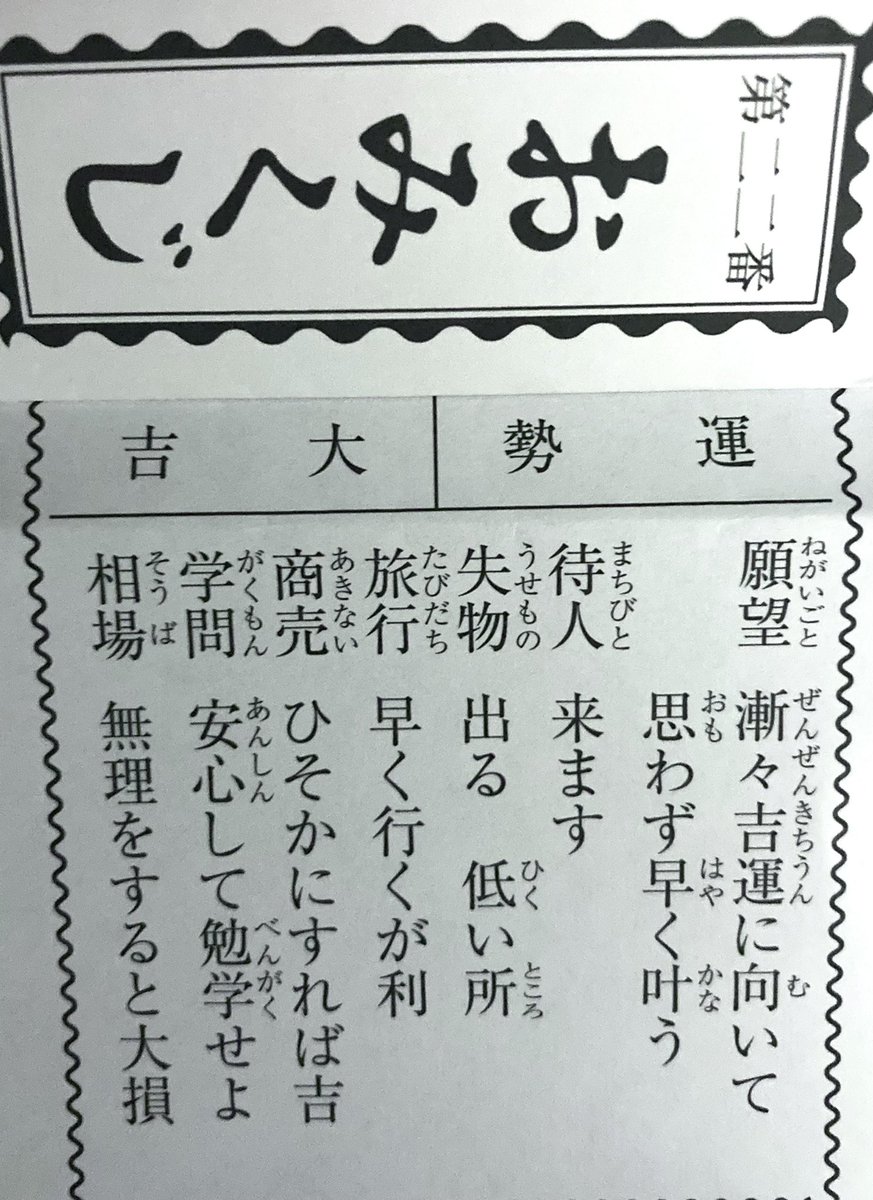 第二二番
おみくじ
運勢 大吉
願望 漸々吉運に向いて
ねがいごと ぜんぜんきちうん む
思わず早く叶う
おも はや かな
待人 来ます
まちびと
失物 出る 低い所
うせもの ひく ところ
旅行 早く行くが利
たびだち
商売 ひそかにすれば吉
あきない
学問 安心して勉学せよ
がくもん あんしん べんがく
相場 無理をすると大損
そうば